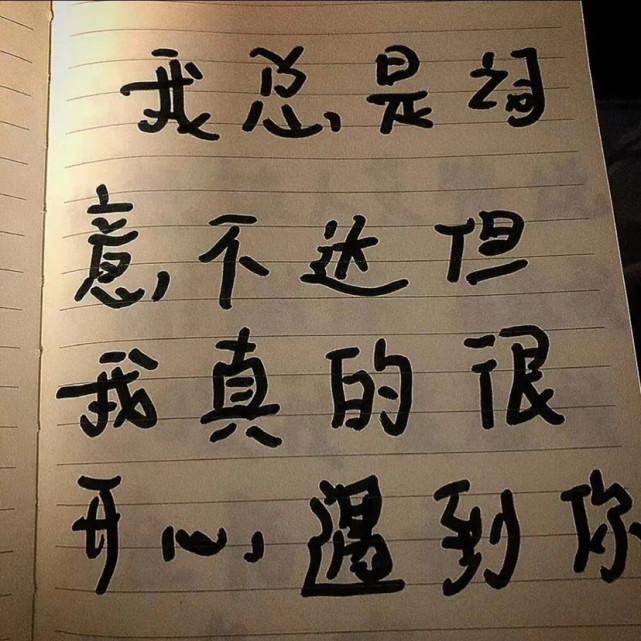 我总是词
意不达但
我真的很
开心遇到你